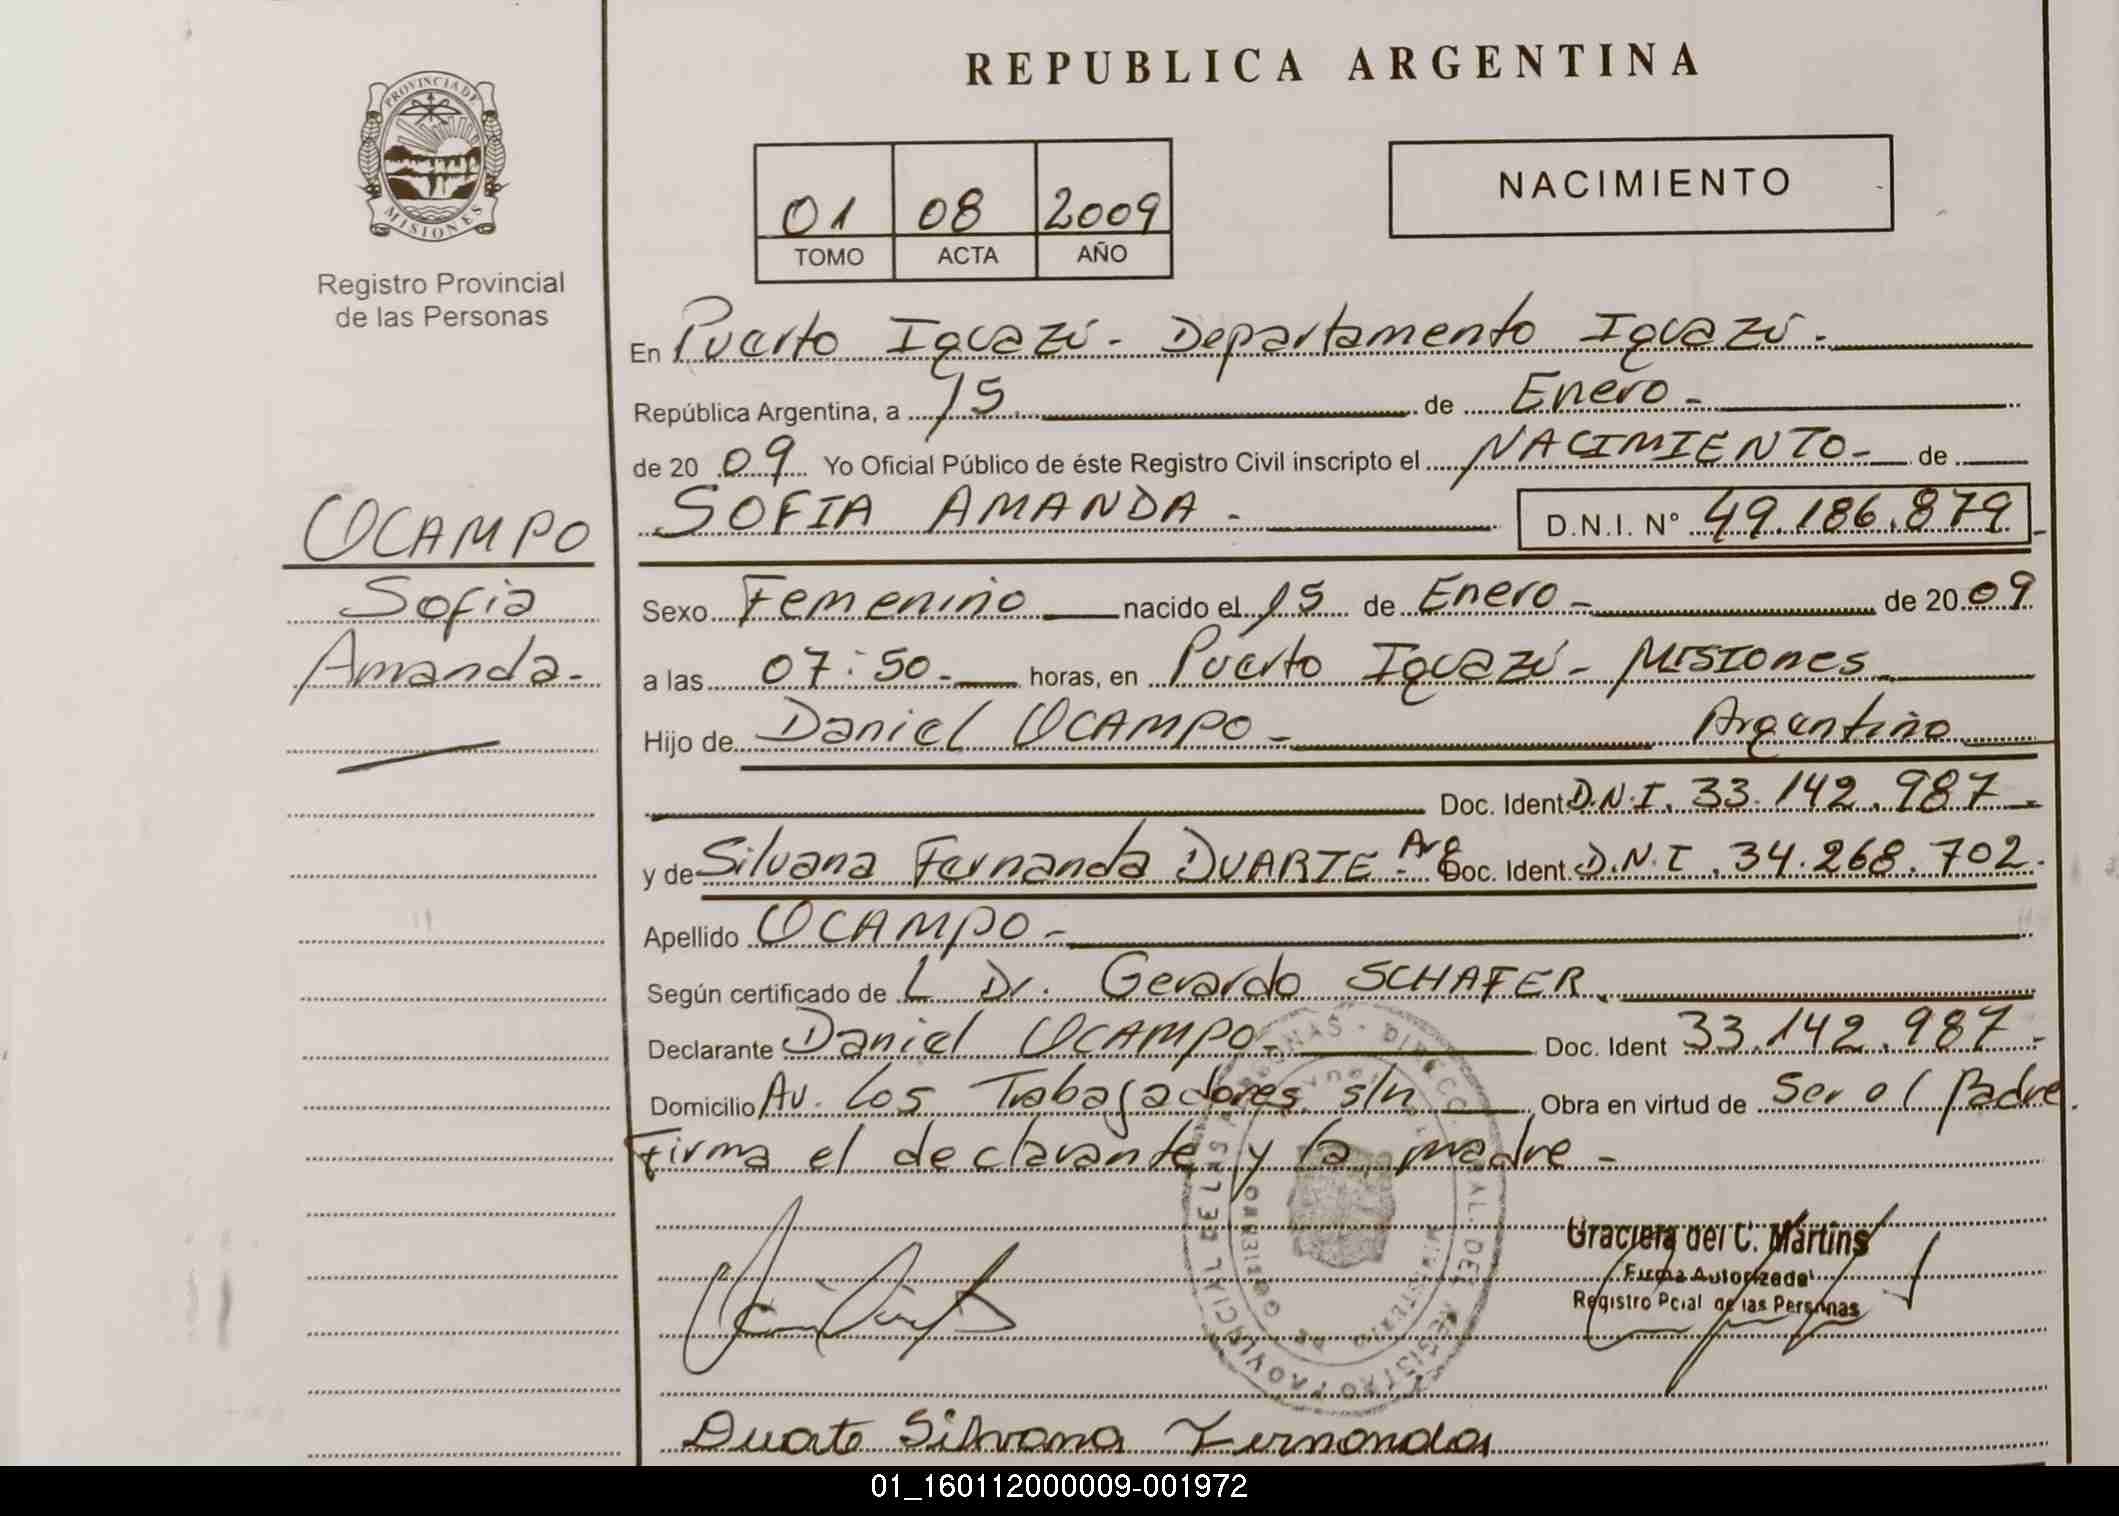 REPUBLICA ARGENTINA
PROVINCIA DE
MISIONES
Registro Provincial
de las Personas
01 08 2009
TOMO ACTA AÑO
NACIMIENTO
En Puerto Iguazú - Departamento Iguazú -
República Argentina, a 15 de Enero -
de 20 09 Yo Oficial Público de éste Registro Civil inscripto el NACIMIENTO - de
SOFIA AMANDA - D.N.I. N° 49.186.879 -
OCAMPO
Sofia
Amanda -
Sexo Femenino nacido el 15 de Enero - de 20 09
a las 07:50 - horas, en Puerto Iguazú - Misiones
Hijo de Daniel OCAMPO - Argentino
Doc. Ident. D.N.I. 33.142.987 -
y de Silvana Fernanda DUARTE - Arg Doc. Ident. D.N.I. 34.268.702 -
Apellido OCAMPO -
Según certificado de L Dr. Gerardo SCHAFER.
Declarante Daniel OCAMPO - Doc. Ident 33.142.987 -
Domicilio Av. Los Trabajadores s/n Obra en virtud de Ser el Padre.
Firma el declarante y la madre -
Graciela del C. Martins
Firma Autorizada
Registro Pcial de las Personas
Duarte Silvana Fernanda
01_160112000009-001972